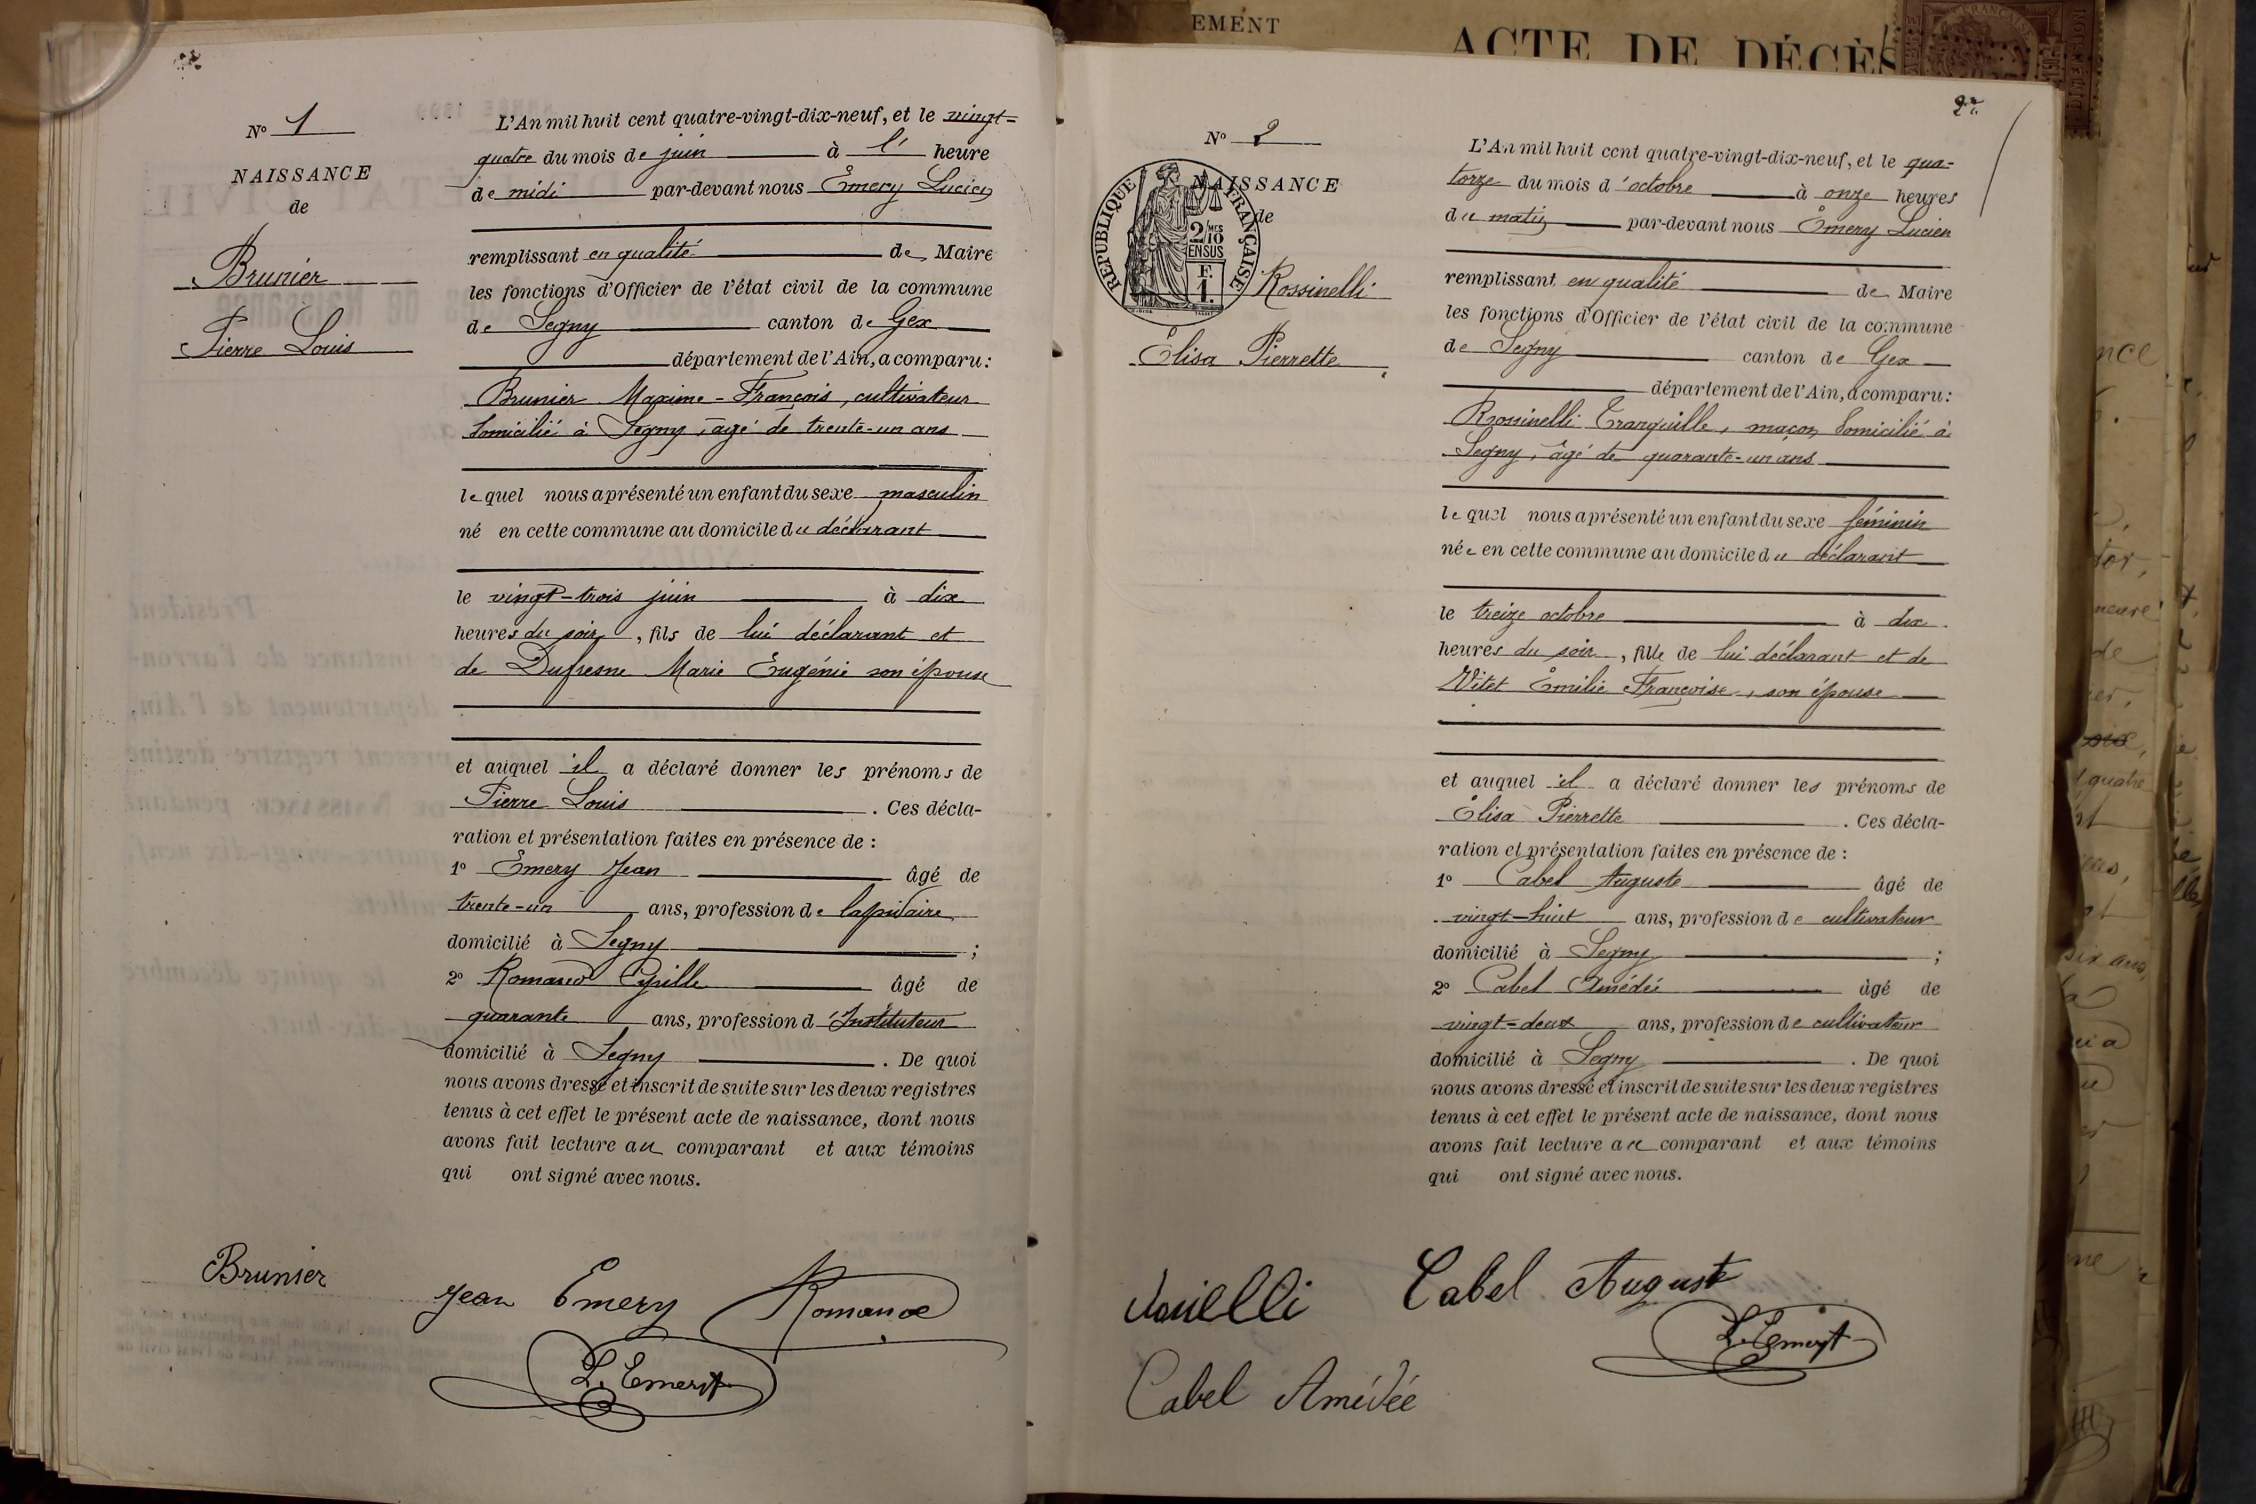 N° 1
NAISSANCE
de
Brunier
Pierre Louis
L'An mil huit cent quatre-vingt-dix-neuf, et le vingt-
quatre du mois de juin à l' heure
de midi par-devant nous Émery Lucien
remplissant en qualité de Maire
les fonctions d'Officier de l'état civil de la commune
de Segny canton de Gex
département de l'Ain, a comparu :
Brunier Maxime-François, cultivateur
domicilié à Segny, âgé de trente-un ans
lequel nous a présenté un enfant du sexe masculin
né en cette commune au domicile du déclarant
le vingt-trois juin à dix
heures du soir, fils de lui déclarant et
de Dufresne Marie Eugénie son épouse
et auquel il a déclaré donner les prénoms de
Pierre Louis . Ces décla-
ration et présentation faites en présence de :
1° Émery Jean âgé de
trente-un ans, profession de lapidaire
domicilié à Segny ;
2° Romand Cyrille âgé de
quarante ans, profession d'Instituteur
domicilié à Segny . De quoi
nous avons dressé et inscrit de suite sur les deux registres
tenus à cet effet le présent acte de naissance, dont nous
avons fait lecture au comparant et aux témoins
qui ont signé avec nous.
Brunier
Jean Emery Romand
L. Emery
EMENT
ACTE DE DÉCÈS
N° 2
NAISSANCE
de
RÉPUBLIQUE FRANÇAISE
2/10 MES
EN SUS
F.
1.
Rossinelli
Élisa Pierrette
L'An mil huit cent quatre-vingt-dix-neuf, et le qua-
torze du mois d'octobre à onze heures
du matin par-devant nous Émery Lucien
remplissant en qualité de Maire
les fonctions d'Officier de l'état civil de la commune
de Segny canton de Gex
département de l'Ain, a comparu :
Rossinelli Tranquille, maçon domicilié à
Segny, âgé de quarante-un ans
lequel nous a présenté un enfant du sexe féminin
née en cette commune au domicile du déclarant
le treize octobre à dix
heures du soir, fille de lui déclarant et de
Vitet Émilie Françoise, son épouse
et auquel il a déclaré donner les prénoms de
Élisa Pierrette . Ces décla-
ration et présentation faites en présence de :
1° Cabel Auguste âgé de
vingt-huit ans, profession de cultivateur
domicilié à Segny ;
2° Cabel Amédée âgé de
vingt-deux ans, profession de cultivateur
domicilié à Segny . De quoi
nous avons dressé et inscrit de suite sur les deux registres
tenus à cet effet le présent acte de naissance, dont nous
avons fait lecture au comparant et aux témoins
qui ont signé avec nous.
Cabel Auguste
L. Emery
Cabel Amédée